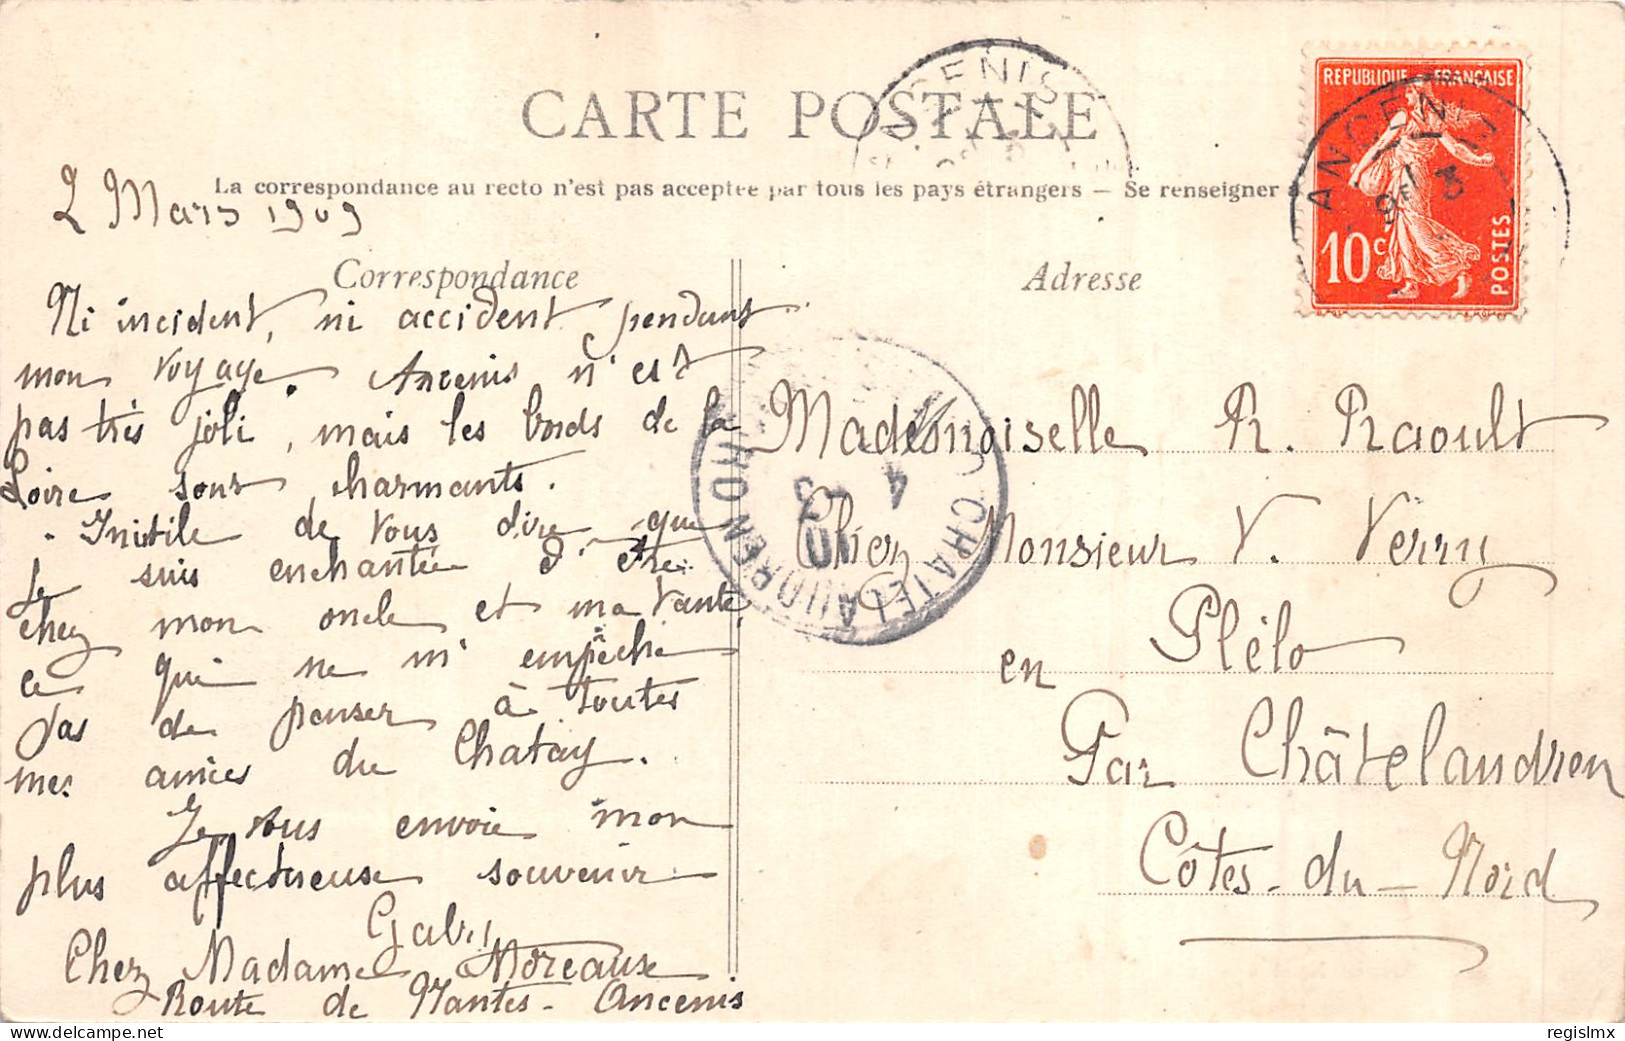 CARTE POSTALE
La correspondance au recto n'est pas acceptée par tous les pays étrangers — Se renseigner à
2 Mars 1909
Correspondance
Ni incident, ni accident pendant
mon voyage. Ancenis n'est
pas très joli, mais les bords de la
Loire sont charmants.
Inutile de vous dire que
je suis enchantée d'être
chez mon oncle et ma tante,
ce qui ne m'empêche
pas de penser à toutes
mes amies du Chatay.
Je vous envoie mon
plus affectueux souvenir
Gaby
Chez Madame Moreaux
Route de Nantes - Ancenis
Adresse
Mademoiselle R. Raoult
Chez Monsieur V. Verry
en Plélo
Par Châtelaudren
Côtes-du-Nord
REPUBLIQUE FRANÇAISE
10c
POSTES
ANCENIS
3
ANCENIS
CHATELAUDREN
4 -3
regislmx
delcampe.net